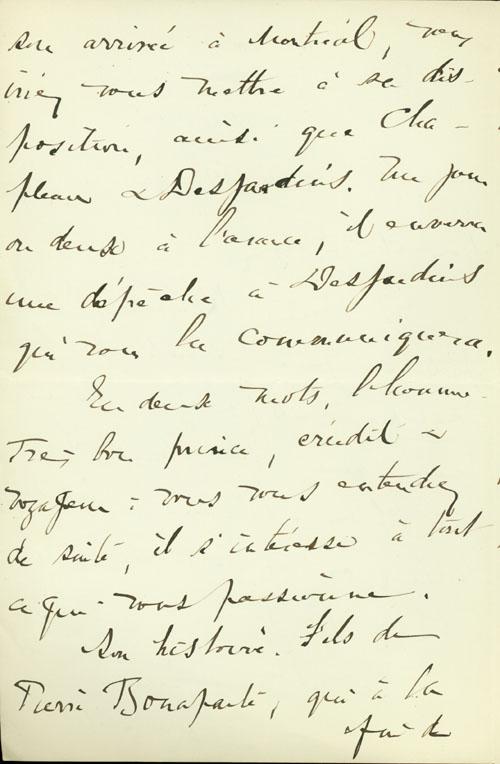 son arrivée à Montréal, vous
iriez vous mettre à sa dis-
position, ainsi que Cha-
pleau & Desjardins. Un jour
ou deux à l'avance, il enverra
une dépêche à Desjardins
qui vous la communiquera.
En deux mots, l'homme.
Très bon prince, érudit &
voyageur : vous vous entendrez
de suite, il s'intéresse à tout
ce qui vous passionne.
Son histoire. Fils de
Pierre Bonaparte, qui à la
fin de